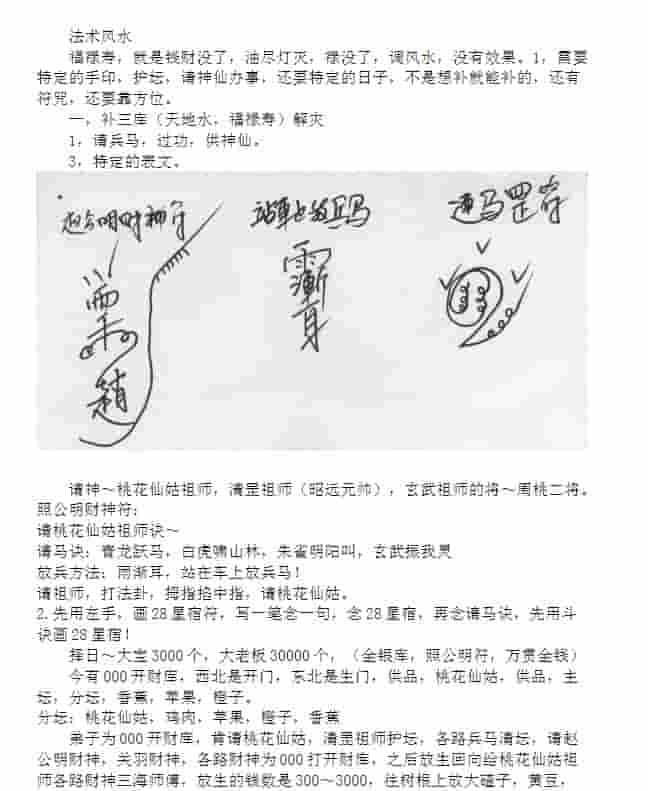 法术风水
福禄寿，就是钱财没了，油尽灯灭，禄没了，调风水，没有效果。1，需要
特定的手印，护坛，请神仙办事，还要特定的日子，不是想补就能补的，还有
符咒，还要靠方位。
一，补三库（天地水，福禄寿）解灾
1，请兵马，过功，供神仙。
3，特定的表文。
赵公明财神符 站车上放兵马 连马罡符
请神～桃花仙姑祖师，清罡祖师（昭远元帅），玄武祖师的将～周桃二将。
照公明财神符：
请桃花仙姑祖师诀～
请马诀：青龙跃马，白虎啸山林，朱雀明阳叫，玄武振我灵
放兵方法：雨渐耳，站在车上放兵马！
请祖师，打法卦，拇指掐中指，请桃花仙姑。
2.先用左手，画28星宿符，写一笔念一句，念28星宿，再念请马诀，先用斗
诀画28星宿！
择日～大宝3000个，大老板30000个，（金银库，照公明符，万贯金钱）
今有000开财库，西北是开门，东北是生门，供品，桃花仙姑，供品，主
坛，分坛，香蕉，苹果，橙子。
分坛：桃花仙姑，鸡肉，苹果，橙子，香蕉
弟子为000开财库，肯请桃花仙姑，清罡祖师护坛，各路兵马清坛，请赵
公明财神，关羽财神，各路财神为000打开财库，之后放生回向给桃花仙姑祖
师各路财神三海师傅，放生的钱数是300～3000，往树根上放大碴子，黄豆，